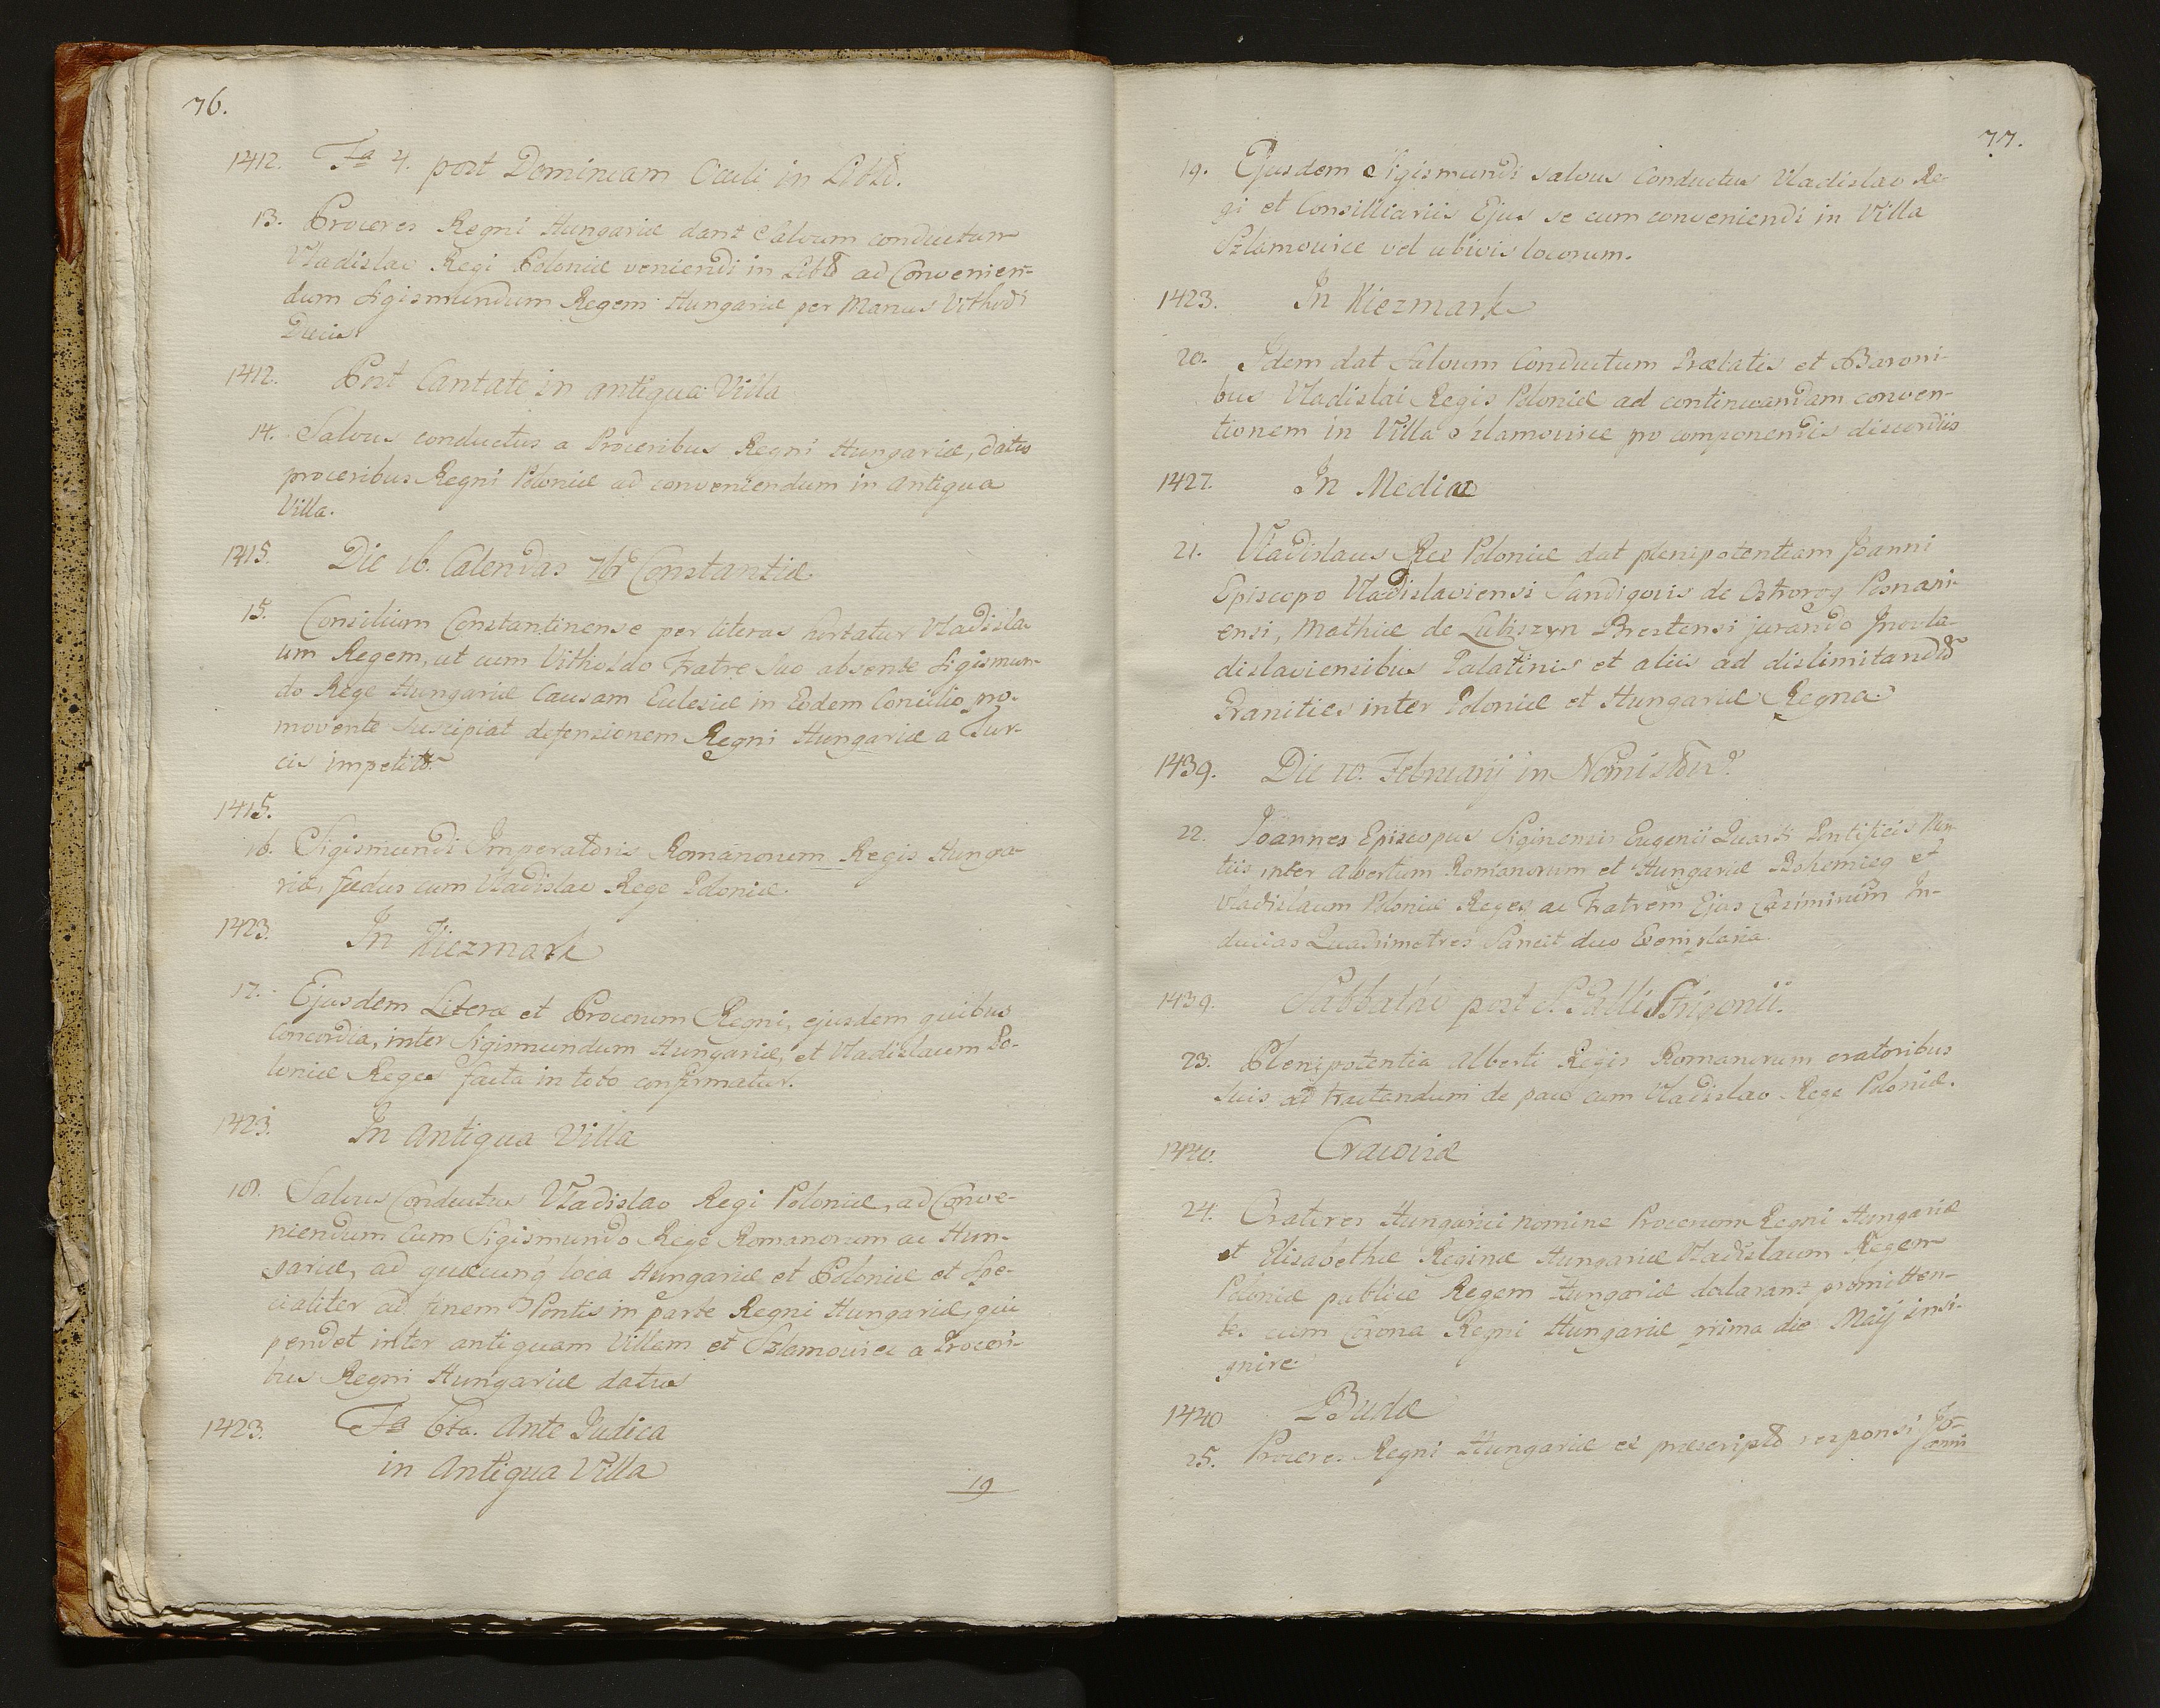 76.
1412. Fa 4. post Dominicam Oculi in Libld.
13. Proceres Regni Hungariæ dant Salvum conductum
Vladislao Regi Poloniæ veniendi in Libld ad Convenien-
dum Sigismundum Regem Hungariæ per Manus Vitholdi
Ducis
1412. Post Cantate in antiqua Villa
14. Salvus conductus a Proceribus Regni Hungariæ, datus
proceribus Regni Poloniæ ad conveniendum in Antiqua
Villa.
1415. Die 16. Calendas 7br Constantiæ
15. Consilium Constantinense per literas hortatur Vladisla-
um Regem, ut cum Vitholdo Fratre Suo absente Sigismun-
do Rege Hungariæ Causam Eclesiæ in Eodem Concilio pro-
movente Suscipiat defensionem Regni Hungariæ a Tur-
cis impetito
1415.
16. Sigismundi Imperatoris Romanorum Regis Hunga-
riæ, fædus cum Vladislao Rege Poloniæ.
1423. In Kiezmark
17. Ejusdem Literæ et Procerum Regni, ejusdem quibus
Concordia, inter Sigismundum Hungariæ, et Vladislaum Po-
loniæ Reges facta in toto confirmatur.
1423. In Antiqua Villa
18. Salvus Conductus Vladislao Regi Poloniæ, ad Conve-
niendum Cum Sigismundo Rege Romanorum ac Hun-
gariæ, ad quæcunq loca Hungariæ et Poloniæ et Spe-
cialiter ad finem Pontis in parte Regni Hungariæ, qui
pendet inter antiquam Villam et Szlamowice a Proceri-
bus Regni Hungariæ datus
1423. Fa 6ta. Ante Judica
in Antiqua Villa
19
77.
19. Ejusdem Sigismundi salvus Conductus Vladislao Re-
gi et Consilliariis Ejus se cum conveniendi in Villa
Szlamowice vel ubivis locorum.
1423. In Kiezmark
20. Idem dat Salvum Conductum Prælatis et Baroni-
bus Vladislai Regis Poloniæ ad continuandam conven-
tionem in Villa Szlamowice pro componendis discordiis
1427. In Mediæ
21. Vladislaus Rex Poloniæ dat plenipotentiam Joanni
Episcopo Vladislaviensi Sandigovis de Ostrorog Posnani-
ensi, Mathiæ de Lubszyn Brestensi jurando Inovla-
dislaviensibus Palatinis et aliis ad dislimitandas
Granities inter Poloniæ et Hungariæ Regna
1439. Die 10. Februarij in
22. Joannes Episcopus Siginensis Eugenii Quarti Pontificis Nun-
tiis inter Albertum Romanorum et Hungariæ Bohemieq et
Vladislaum Poloniæ Reges ac Fratrem Ejus Casimirum In-
ducias Quadrimetres Sancit duo Exemplaria.
1439. Sabbatho post S. Galli Strigonii.
23. Plenipotentia Alberti Regis Romanorum oratoribus
Suis ad tractandum de pace cum Vladislao Rege Poloniæ.
1440. Cracoviæ
24. Oratores Hungarici nomine Procerum Regni Hungariæ
et Elisabethæ Reginæ Hungariæ Vladislaum Regem
Poloniæ publice Regem Hungariæ declarant promitten-
tes eum Corona Regni Hungariæ prima die Maij insi-
gnire.
1440 Budæ
25. Proceres Regni Hungariæ ex præscripto responsi Jo-
anni